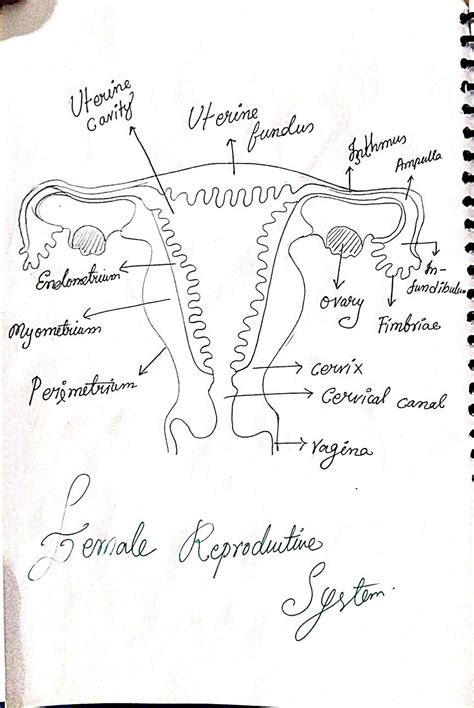 Uterine
cavity
Uterine
fundus
Isthmus
Ampulla
In-
fundibulum
Fimbriae
Ovary
Endometrium
Myometrium
Perimetrium
Cervix
Cervical canal
Vagina
Female Reproductive
System.